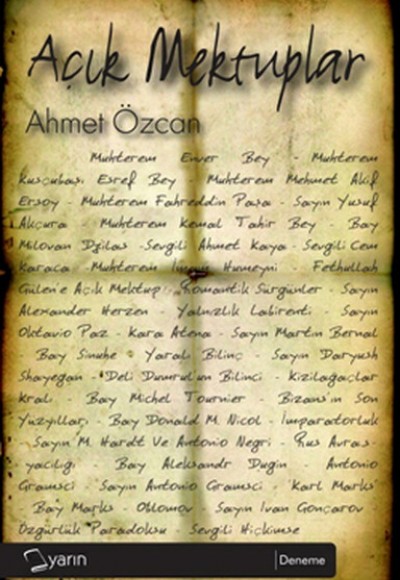 Açık Mektuplar
Ahmet Özcan
Muhterem Enver Bey - Muhterem
Kuşçubaşı Eşref Bey - Muhterem Mehmet Akif
Ersoy - Muhterem Fahreddin Paşa - Sayın Yusuf
Akçura Muhterem Kemal Tahir Bey - Bay
Milovan Djilas -Sevgili Ahmet Kaya - Sevgili Cem
Karaca - Muhterem İmam Humeyni - Fethullah
Gülen'e Açık Mektup - Romantik Sürgünler - Sayın
Alexander Herzen - Yalnızlık Labirenti - Sayın
Oktavio Paz - Kara Atena - Sayın Martin Bernal
- Bay Sinuhe - Yaralı Bilinç - Sayın Daryush
Shayegan - Deli Dumrul'un Bilinci - Kızılağaçlar
Kralı - Bay Michel Tournier - Bizans'ın Son
Yüzyılları - Bay Donald M. Nicol - İmparatorluk
- Sayın M. Hardt Ve Antonio Negri - Rus Avras-
yacılığı - Bay Aleksandr Dugin - Antonio
Gramsci - Sayın Antonio Gramsci - Karl Marks
- Bay Marks - Oblomov - Sayın Ivan Gonçarov -
Özgürlük Paradoksu - Sevgili Hiçkimse
yarın
Deneme